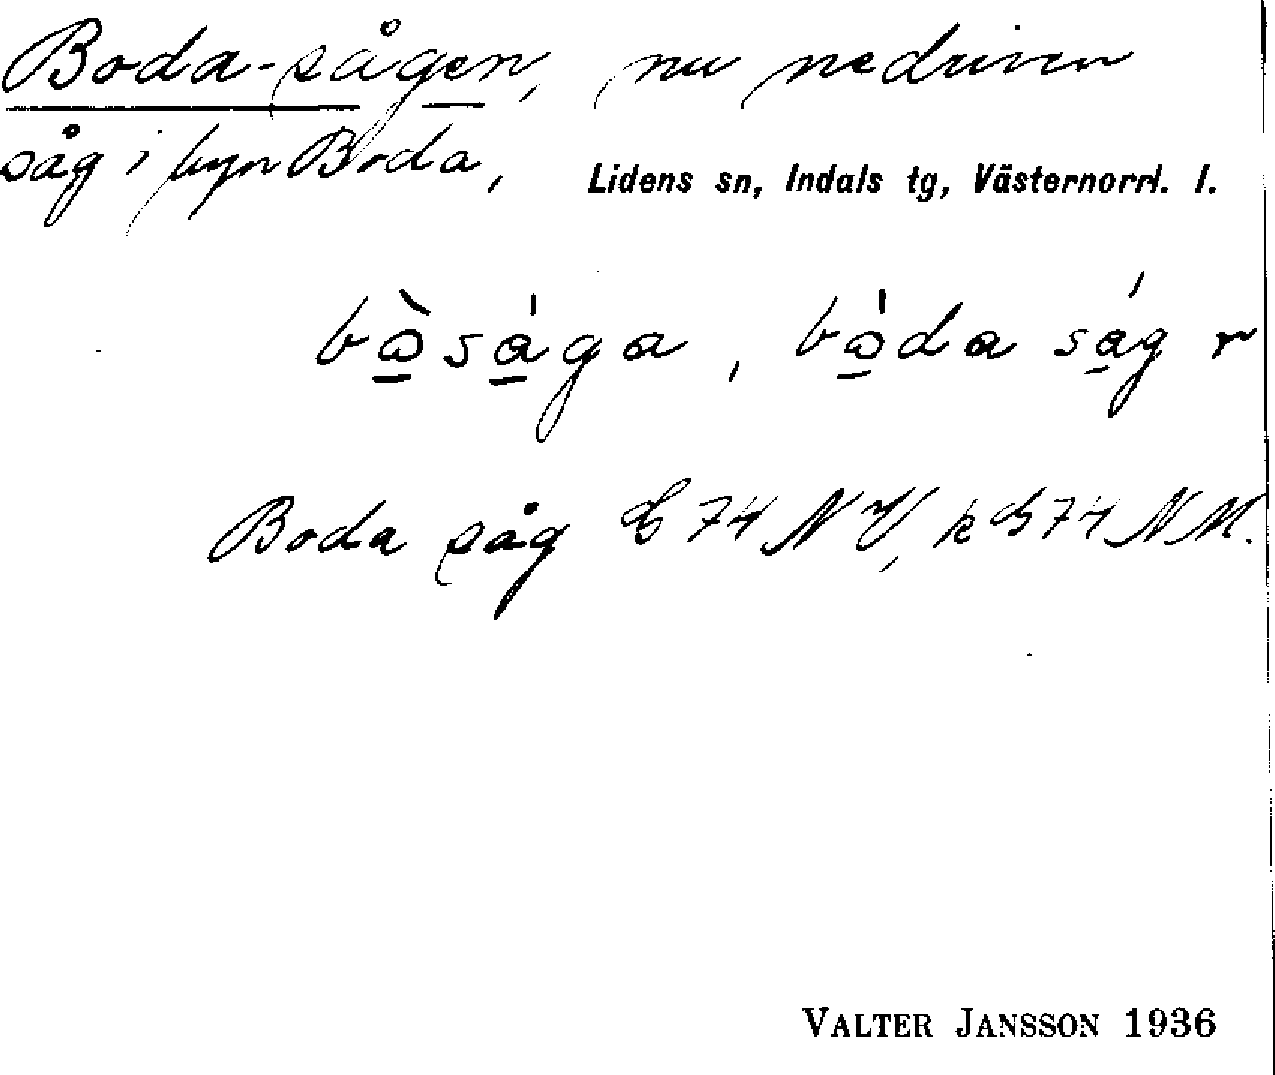 Boda-sågen, nu nedriven
såg i byn Boda, Lidens sn, Indals tg, Västernorrl. l.
bò̱sá̱ga, bò̱da sá̱g r
Boda såg G 74 NV, k G 74 NM.
VALTER JANSSON 1936